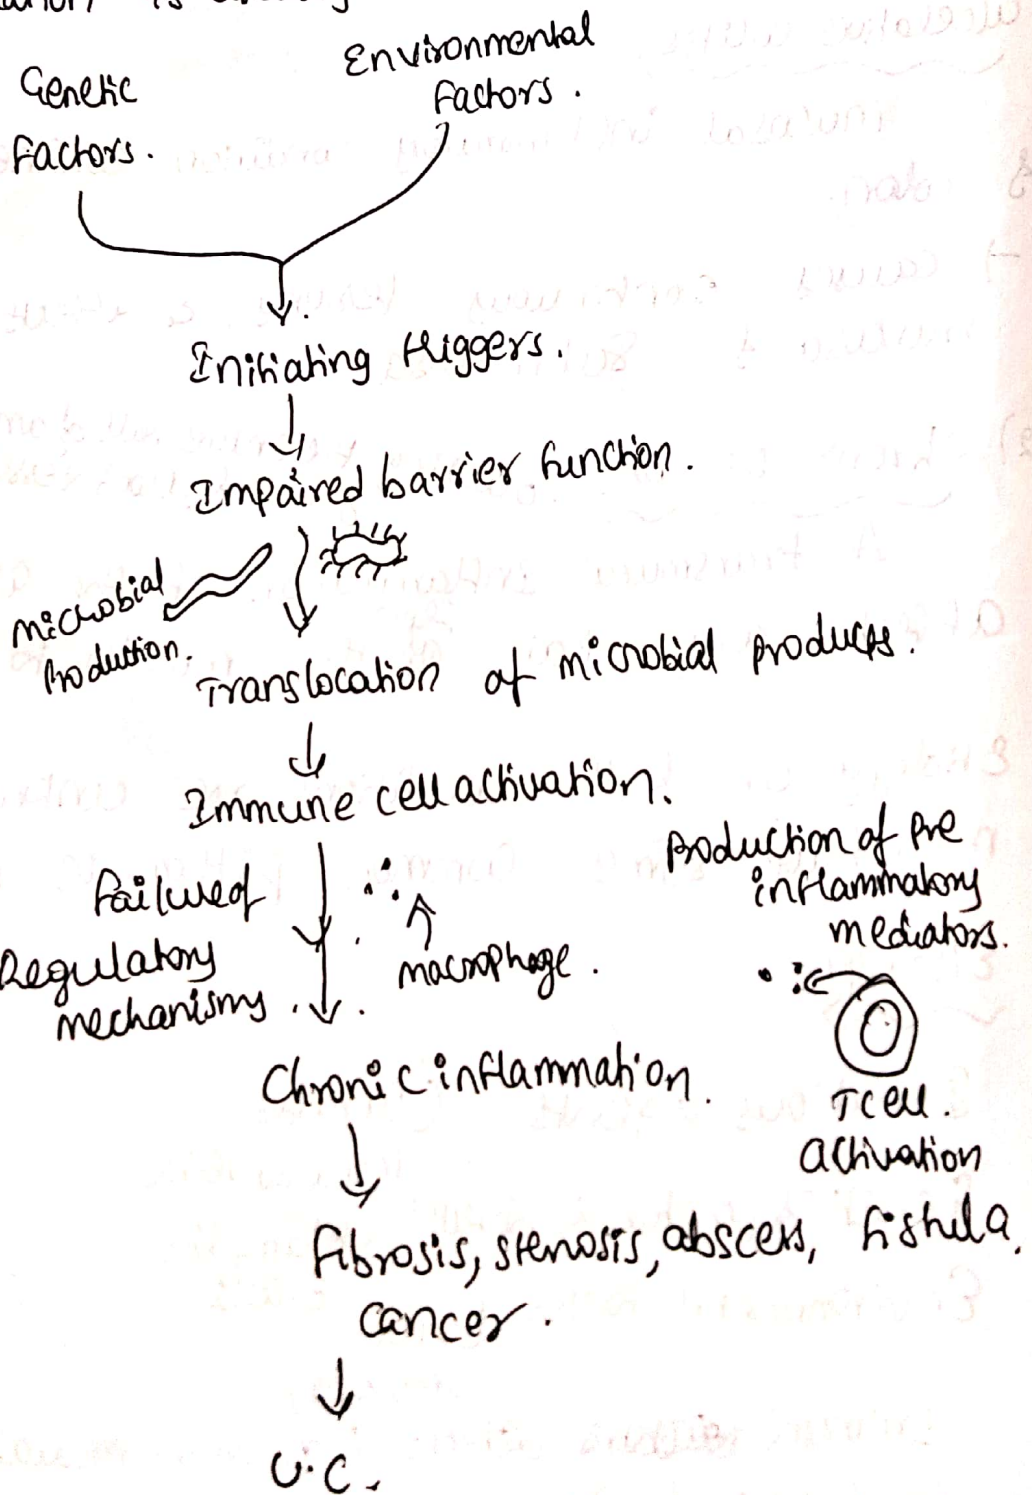 is
Genetic
Factors.
Environmental
Factors.
Initiating triggers.
Impaired barrier function.
Microbial
Production.
Translocation of microbial products.
Immune cell activation.
Failure of
Regulatory
mechanisms.
macrophage.
Production of Pre
inflammatory
mediators.
T cell.
activation
Chronic inflammation.
Fibrosis, stenosis, abscess, fistula,
cancer.
U.C.